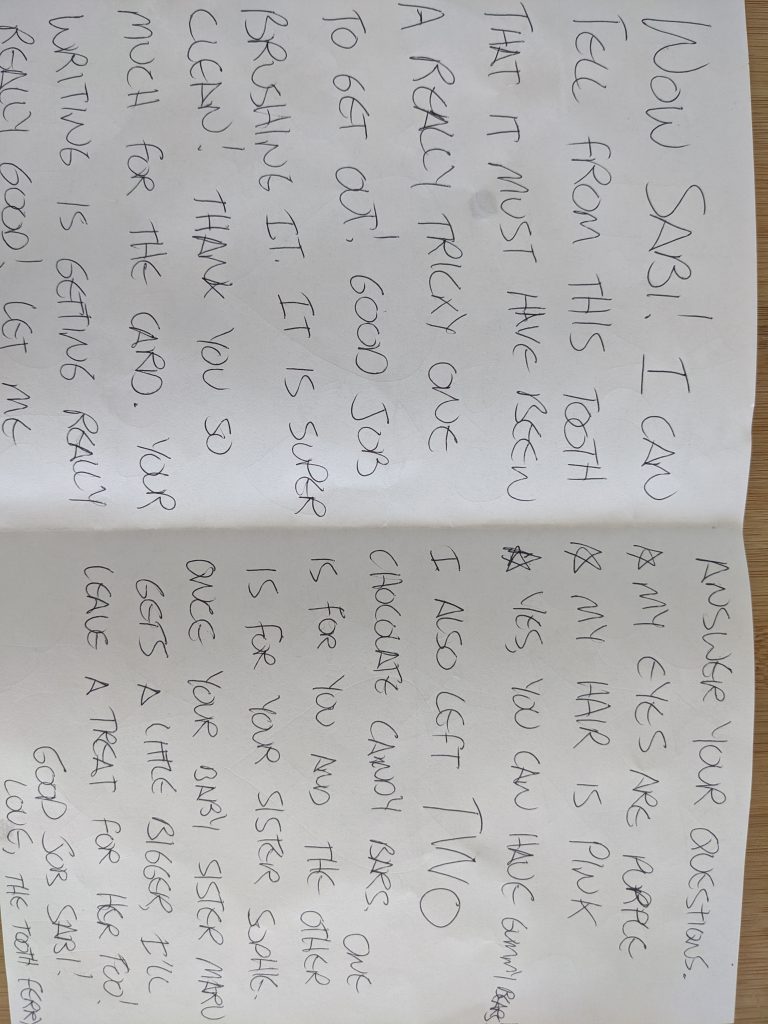 WOW SABI! I CAN
TELL FROM THIS TOOTH
THAT IT MUST HAVE BEEN
A REALLY TRICKY ONE
TO GET OUT! GOOD JOB
BRUSHING IT. IT IS SUPER
CLEAN! THANK YOU SO
MUCH FOR THE CARD. YOUR
WRITING IS GETTING REALLY
REALLY GOOD! LET ME
ANSWER YOUR QUESTIONS.
☆ MY EYES ARE PURPLE
☆ MY HAIR IS PINK
☆ YES, YOU CAN HAVE GUMMY BEARS
I ALSO LEFT TWO
CHOCOLATE CANDY BARS. ONE
IS FOR YOU AND THE OTHER
IS FOR YOUR SISTER SOPHIE.
ONCE YOUR BABY SISTER MARU
GETS A LITTLE BIGGER, I'LL
LEAVE A TREAT FOR HER TOO!
GOOD JOB SABI!
LOVE, THE TOOTH FERRY